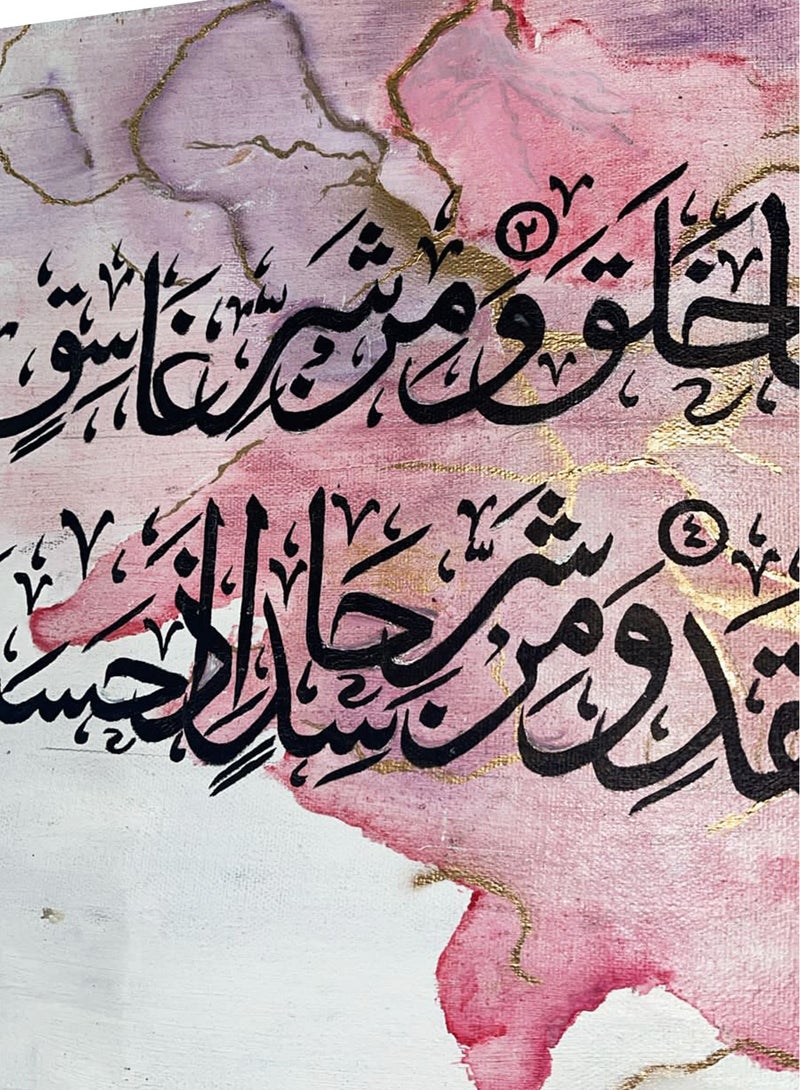 ا خَلَقَ ٢ وَمِن شَرِّ غَاسِقٍ
قَدِ ٤ وَمِن شَرِّ حَاسِدٍ إِذَا حَسَ